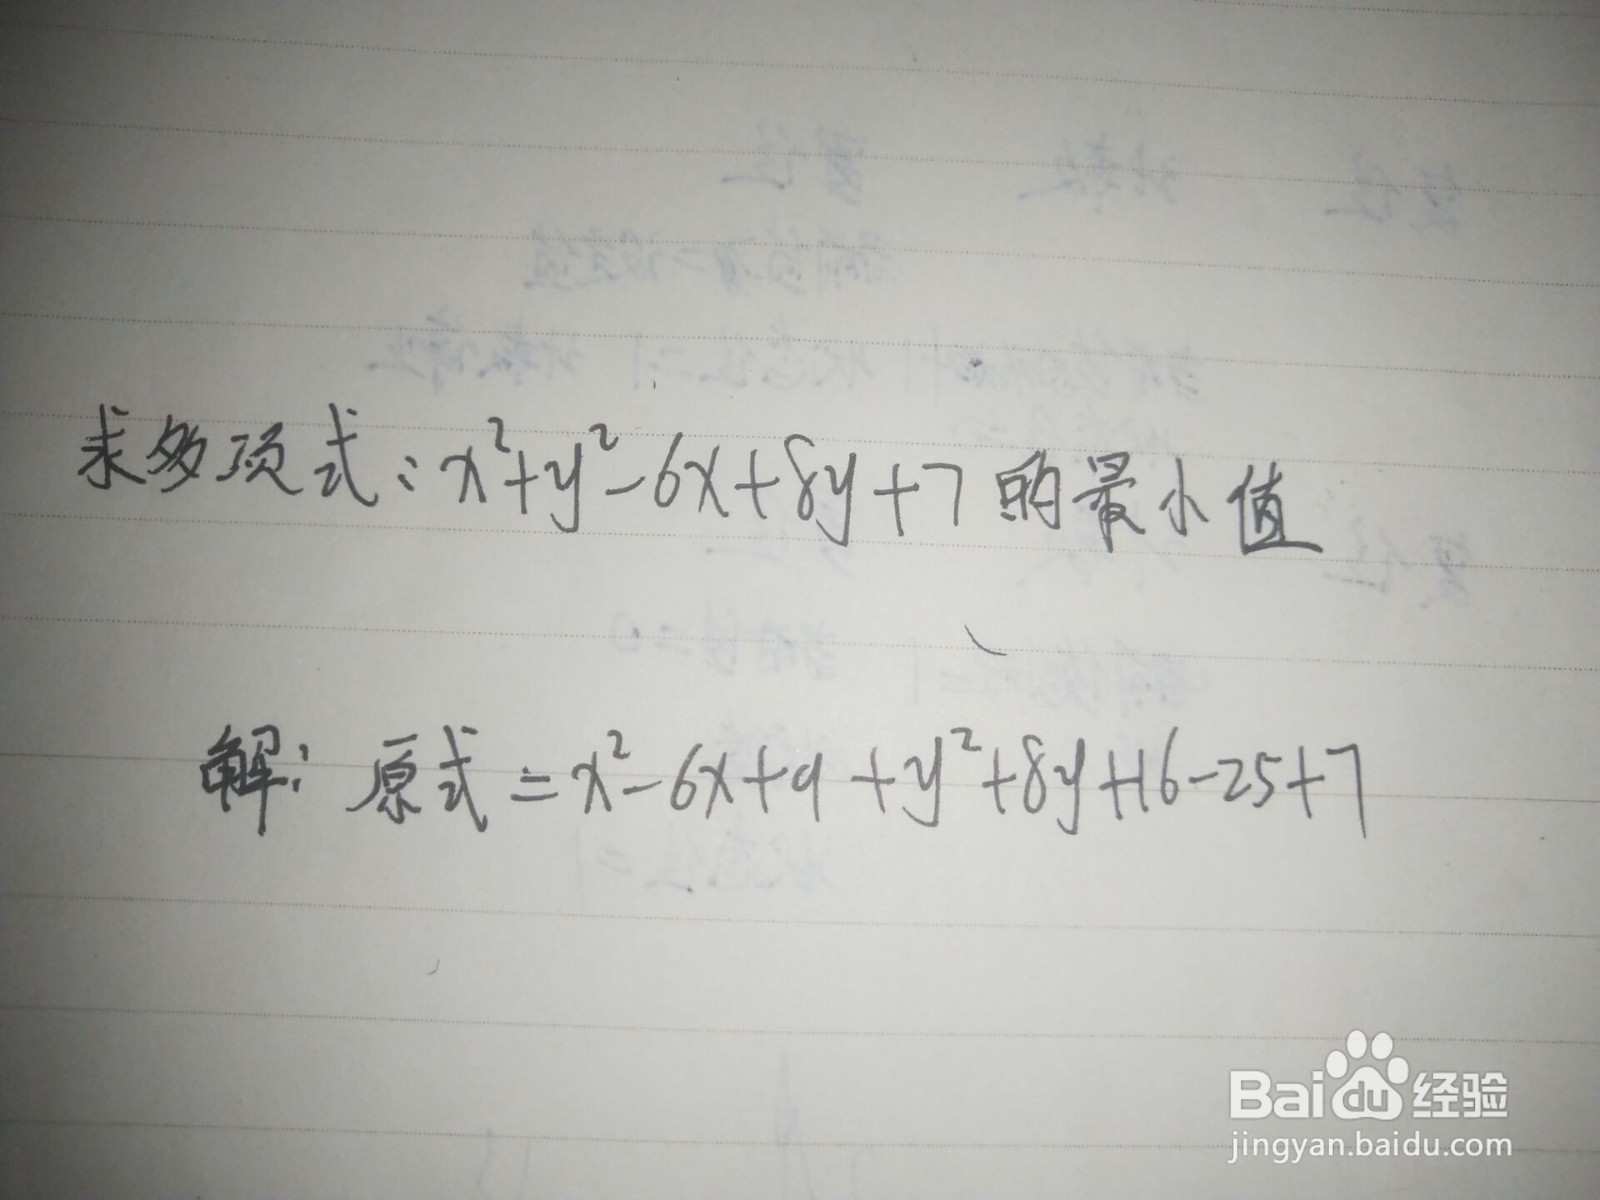 求多项式:x²+y²-6x+8y+7的最小值
解:原式=x²-6x+9+y²+8y+16-25+7
Baidu经验
jingyan.baidu.com